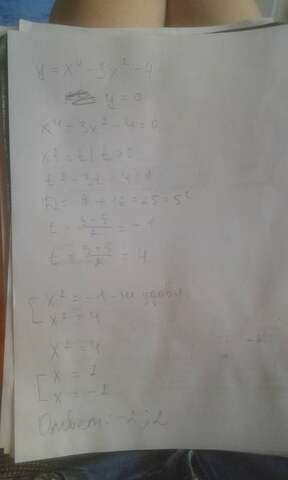 y = x⁴ - 3x² - 4
y = 0
x⁴ - 3x² - 4 = 0
x² = t, t > 0
t² - 3t - 4 = 0
D = 9 + 16 = 25 = 5²
t = (3-5)/2 = -1
t = (3+5)/2 = 4
[ x² = -1 - не
x² = 4
x² = 4
[ x = 2
x = -2
Ответ: -2; 2